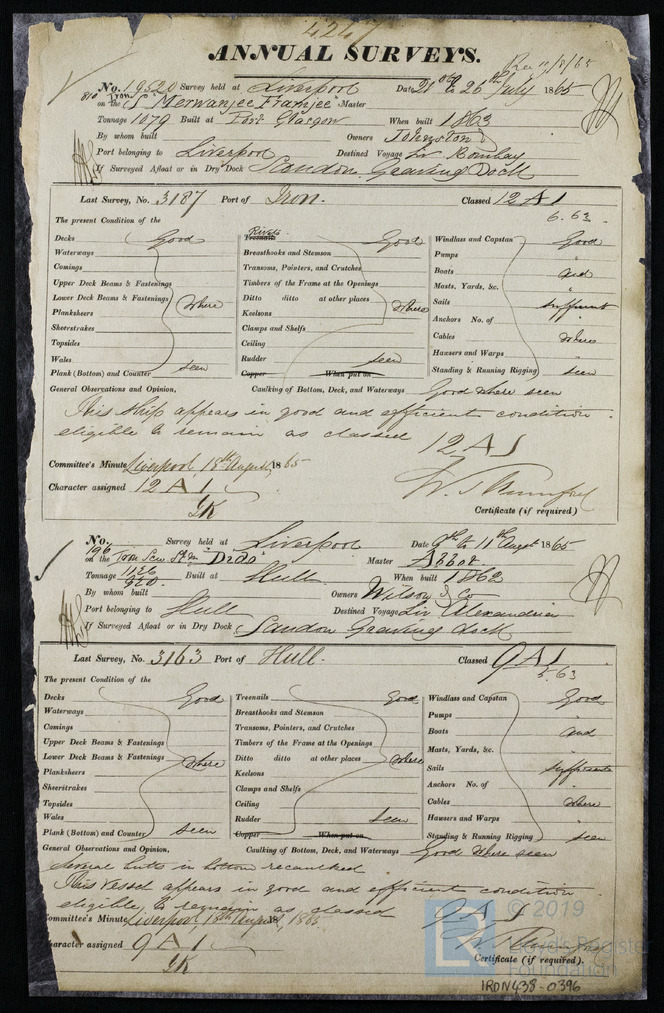 4247
ANNUAL SURVEYS.
Rec 10/8/65
No. 19520 Survey held at Liverpool Date 21st to 26th July 1865
810 Iron
on the S Merwanjee Framjee Master
Tonnage 1079 Built at Port Glasgow When built 1863
By whom built Owners Johnston
Port belonging to Liverpool Destined Voyage Liv Bombay
If Surveyed Afloat or in Dry Dock Sandon Graving Dock
Last Survey, No. 3187 Port of Iron. Classed 12 A 1
6.63
The present Condition of the
Decks Good
Waterways
Comings
Upper Deck Beams & Fastenings
Lower Deck Beams & Fastenings where
Planksheers
Sheerstrakes
Topsides
Wales
Plank (Bottom) and Counter seen
Rivets
Treenails Good
Breasthooks and Stemson
Transoms, Pointers, and Crutches
Timbers of the Frame at the Openings
Ditto ditto at other places where
Keelsons
Clamps and Shelfs
Ceiling
Rudder seen
Copper When put on
Windlass and Capstan Good
Pumps "
Boats and
Masts, Yards, &c. "
Sails sufficient
Anchors No. of "
Cables where
Hawsers and Warps "
Standing & Running Rigging seen
General Observations and Opinion, Caulking of Bottom, Deck, and Waterways Good where seen
This ship appears in good and efficient condition
eligible to remain as classed
12 A 1
Committee's Minute Liverpool 18th August 1865
Character assigned 12 A 1
Certificate (if required)
No. Survey held at Liverpool Date 9th to 11th August 1865
196
on the Iron Scw Str "Dido" Master Abbot
Tonnage 1126 Built at Hull When built 1862
By whom built Owners Wilson & Co
Port belonging to Hull Destined Voyage Liv Alexandria
If Surveyed Afloat or in Dry Dock Sandon Graving dock
Last Survey, No. 3163 Port of Hull. Classed 9 A 1
5.63
The present Condition of the
Decks Good
Waterways
Comings
Upper Deck Beams & Fastenings
Lower Deck Beams & Fastenings where
Planksheers
Sheerstrakes
Topsides
Wales
Plank (Bottom) and Counter seen
Treenails Good
Breasthooks and Stemson
Transoms, Pointers, and Crutches
Timbers of the Frame at the Openings
Ditto ditto at other places where
Keelsons
Clamps and Shelfs
Ceiling
Rudder seen
Copper When put on
Windlass and Capstan Good
Pumps "
Boats and
Masts, Yards, &c. "
Sails sufficient
Anchors No. of "
Cables where
Hawsers and Warps "
Standing & Running Rigging seen
General Observations and Opinion, Caulking of Bottom, Deck, and Waterways Good where seen
Several butts in bottom recaulked
This vessel appears in good and efficient condition
eligible to remain as classed
9 A 1
Committee's Minute Liverpool, 18th August 18, 1865
Character assigned 9 A 1
Certificate (if required).
© 2019
Lloyd's Register
Foundation
IRON438-0396